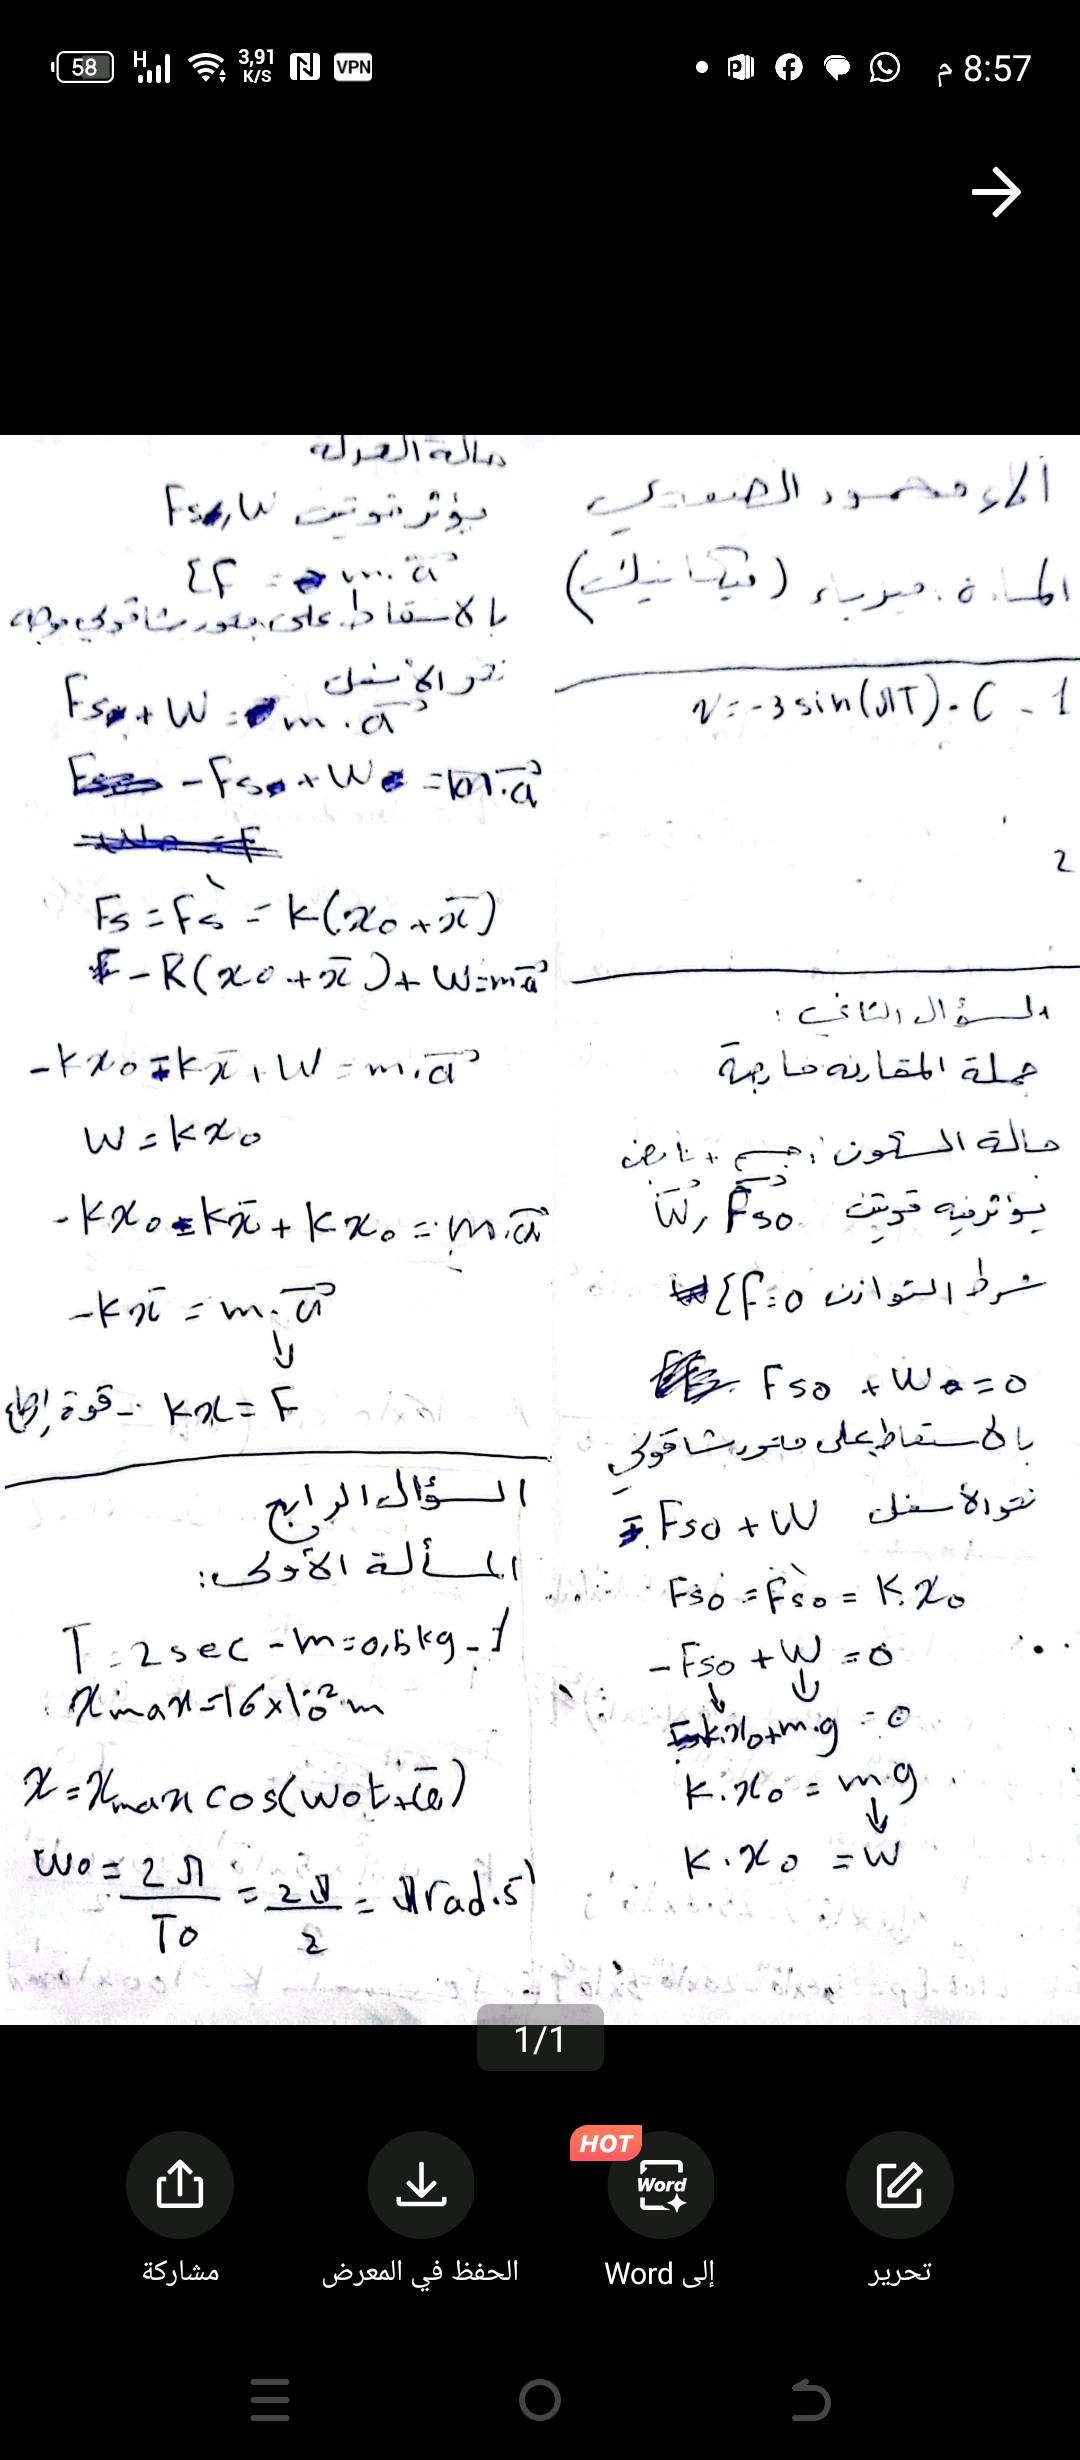 58
H
3,91
K/S
VPN
8:57 م
ألاء محمود الصعيدي
المادة: فيزياء (ميكانيك)
1 - C . v = -3 sin(πT)
2
السؤال الثاني:
جملة المقارنة خارجية
حالة السكون: جسم + نابض
يؤثر فيه قوتين W, Fs0
شرط التوازن ΣF = 0
Fs0 + W = 0
بالاسقاط على محور شاقولي
نحو الأسفل Fs0 + W
Fs0 = Fs0' = K.x0
-Fs0 + W = 0
-k.x0 + m.g = 0
k.x0 = m.g
K.x0 = W
حالة الحركة
يؤثر قوتين Fs, W
ΣF = m.a
بالاسقاط على محور شاقولي موجه
نحو الأسفل
Fs + W = m.a
-Fs + W = m.a
Fs = Fs' = k(x0 + x)
-R(x0 + x) + W = m a
-kx0 - kx + W = m.a
W = kx0
-kx0 - kx + kx0 = m.a
-kx = m.a
kx = F - قوة إرجاع
السؤال الرابع
المسألة الأولى:
T = 2sec - m = 0,5kg - 1
xmax = 16x10^-2 m
x = xmax cos(w0t + φ)
w0 = 2π/T0 = 2π/2 = π rad.s^-1
1/1
HOT
Word
مشاركة
الحفظ في المعرض
إلى Word
تحرير